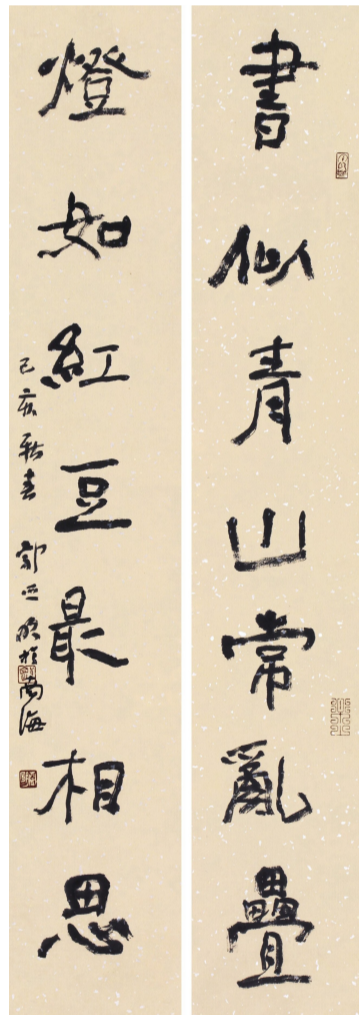 書似青山常亂疊
燈如紅豆最相思
己亥新春 郭亞明於南海